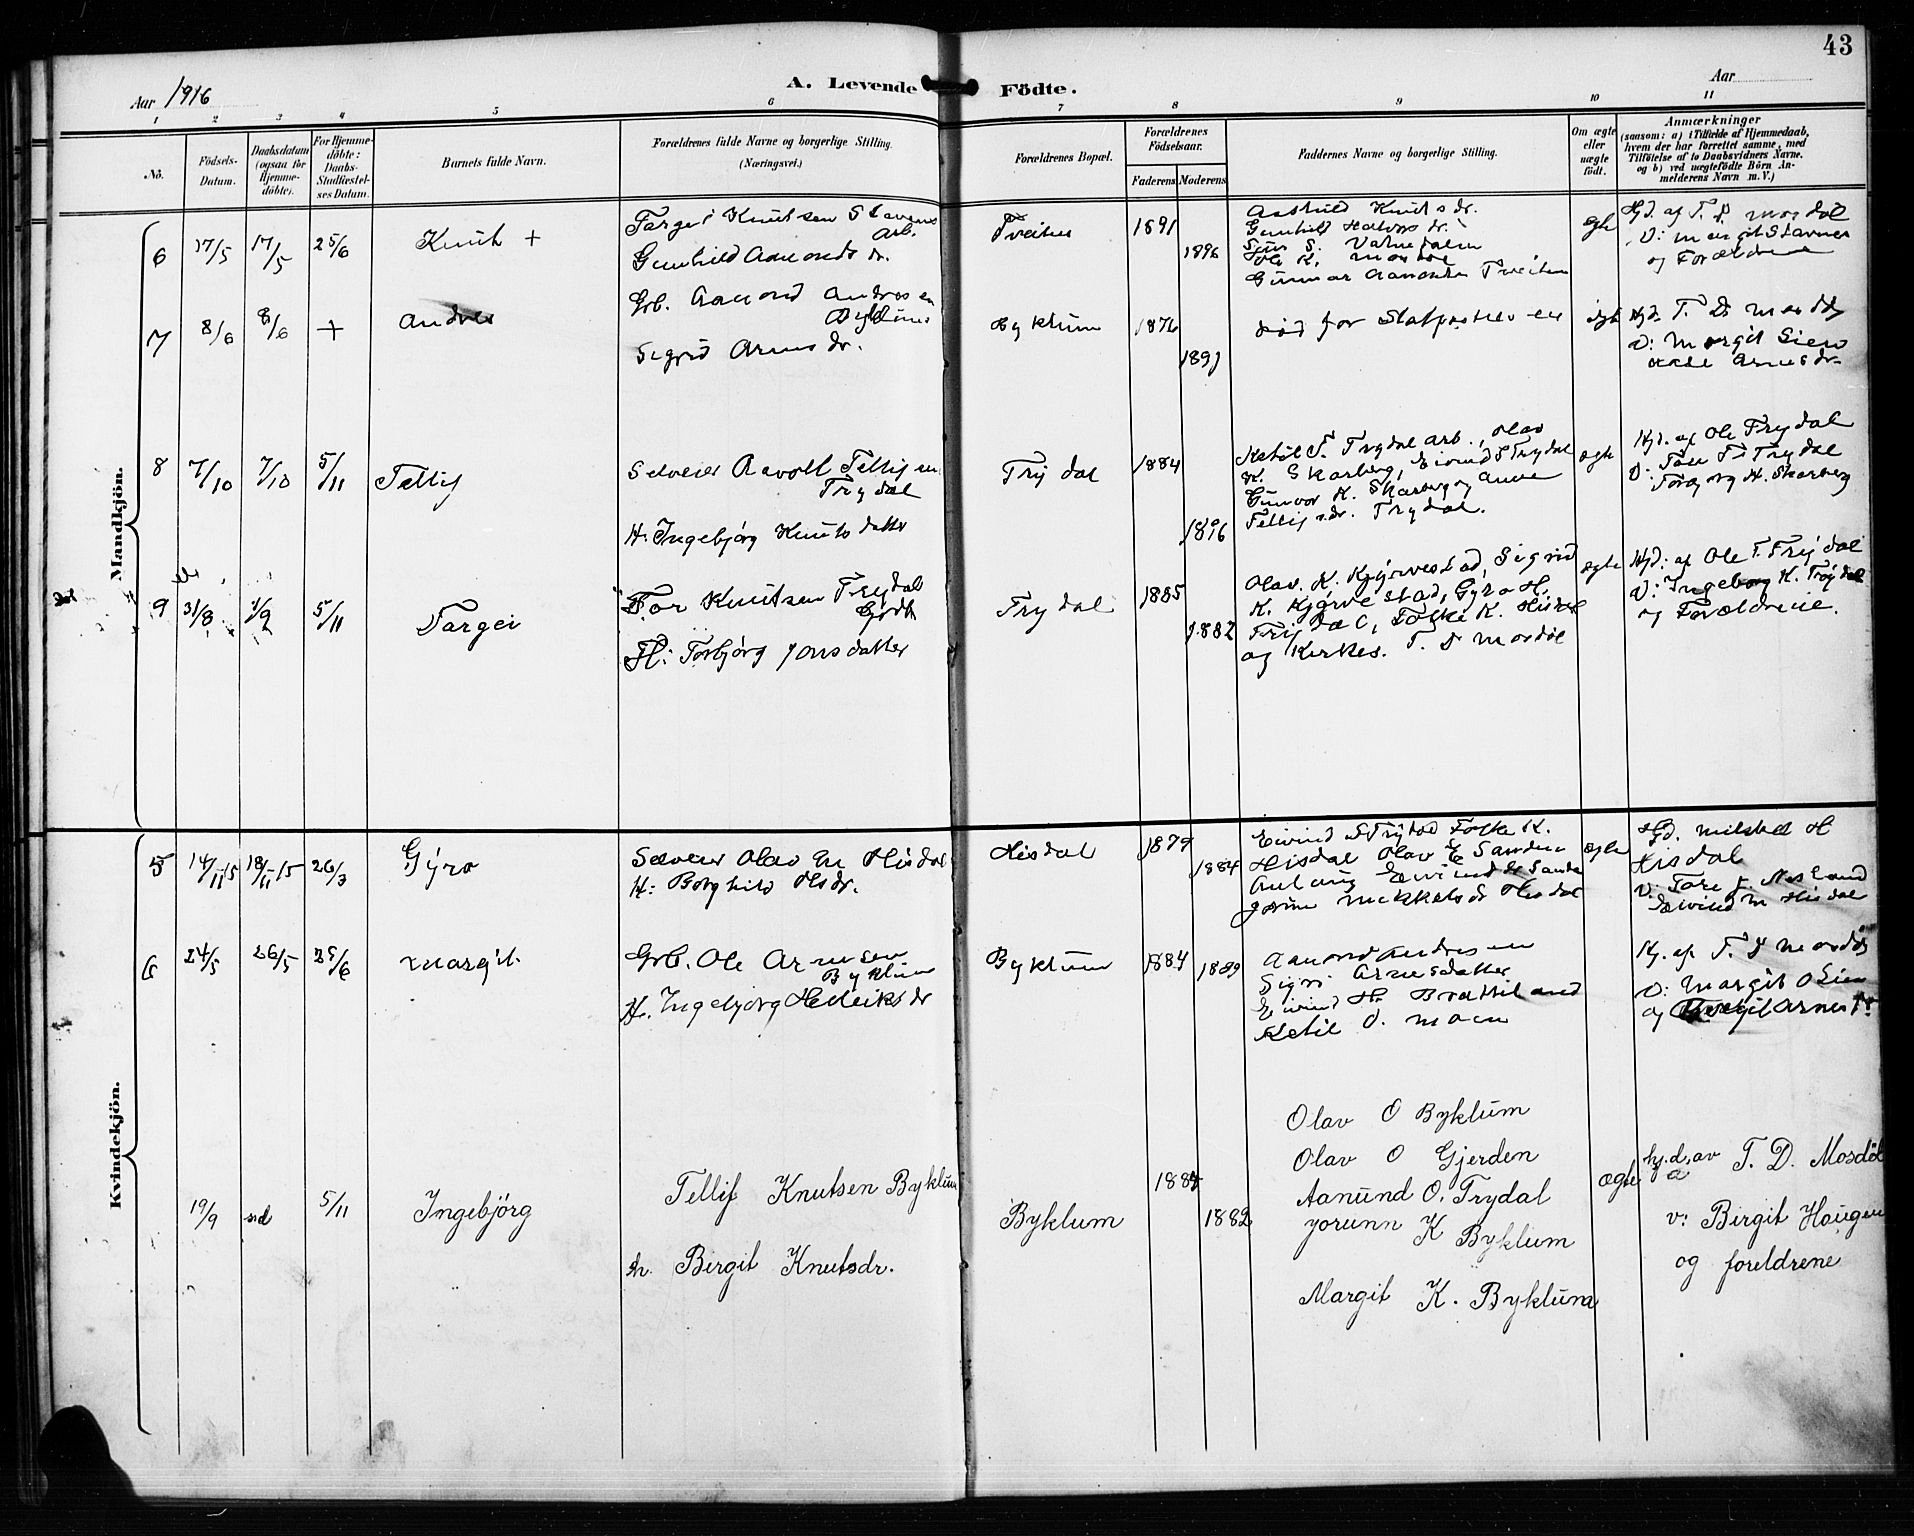 43
Aar 1916
A. Levende Födte.
Aar
1 2 3 4 5 6 7 8 9 10 11
No.
Födsels-Datum.
Daabsdatum (ogsaa for Hjemme-döbte).
For Hjemme-döbte: Daabs-Stadfæstel-ses Datum.
Barnets fulde Navn.
Forældrenes fulde Navne og borgerlige Stilling. (Næringsvei.)
Forældrenes Bopæl.
Forældrenes Födselsaar.
Faderens Moderens
Faddernes Navne og borgerlige Stilling.
Om ægte eller uægte födt.
Anmærkninger
(saasom: a) i Tilfælde af Hjemmedaab,
hvem der har forrettet samme, med
Tilföielse af to Daabsvidners Navne.
og b) ved uægtefödte Börn An-
melderens Navn m. V.)
Mandkjön.
6 17/5 17/5 25/6 Knut +
Targei Knutsen Stavenes
Arb.
Gunhild Aamonds dr.
Tveiten 1891 1896
Aashild Knuts dr.
Gunhild Halvors dr.
S. Vatnedalen
Ole K. Mosdøl
Gunnar Aamonden Tveiten
ægte
Hjd. af T. D. Mosdøl
V: Margit Stavnes
og Forældrene
7 8/6 8/6 + Andres
Grb. Aamond Andresen
Byklum
Sigrid Arnes dr.
Byklum 1876 1891
død før Stafæstelsen
ægte
Hjd. T. D. Mosdøl
V: Margit Lien
Arnesdr.
8 7/10 7/10 5/11 Tellif
Selveier Ravolt Tellifsen
Trydal
H: Ingebjørg Knutsdatter
Trydal 1884 1896
Ketil T. Trydal Arb., Olav
K. Skarberg, Eivind S Trydal
Gunvor K. Skarberg og Anne
Tellifsdr. Trydal.
ægte
Hjd. af Ole Trydal
V: Tone T. Trydal
Torbjørg H. Skarberg
9 31/8 1/9 5/11 Targei
Tor Knutsen Trydal
Grdb
H: Torbjørg Jonsdatter
Trydal 1885 1882
Olav. K. Kjørvestad, Sigrid
K. Kjørvestad, Gyro H.
Trydal, Folke K. Hisdal
og Kirkes. T. D Mosdøl
ægte
Hjd: af Ole T. Trydal
V: Ingeborg K. Trydal
og Forældrene.
Kvindekjön.
5 14/11 15 18/11 15 26/3 Gyro
Selveier Olav M Hisdal
H: Borghild Olsdr.
Hisdal 1879 1884
Eivind S Trydal Folke K.
Hisdal Olav E Sanden
Aslaug Eivindsdr Sanden
Jorun Mikkelsdr Hisdal
ægte
Hd. Mikkel H
Hisdal
V: Tore J. Nesland
Eivind M Hisdal
6 24/5 26/5 25/6 Margit
Grb. Ole Arnesen
Byklum
H. Ingebjørg Hendriksdr
Byklum 1884 1889
Aamond Andresen
Sigri Arnesdatter
Eivind H. Bratteland
Ketil O. Moen
Hj. af T. D Mosdøl
V: Margit O Lien
og Margit Arnesdr.
19/9 5/11 Ingebjörg
Tellif Knutsen Byklum
h. Birgit Knutsdr.
Byklum 1882
Olav O Byklum
Olav O Gjerden
Aanund O. Trydal
Jorunn K Byklum
Margit K. Byklum
ægte
hj.d. av T. D. Mosdöl
v: Birgit Haugen
og foreldrene